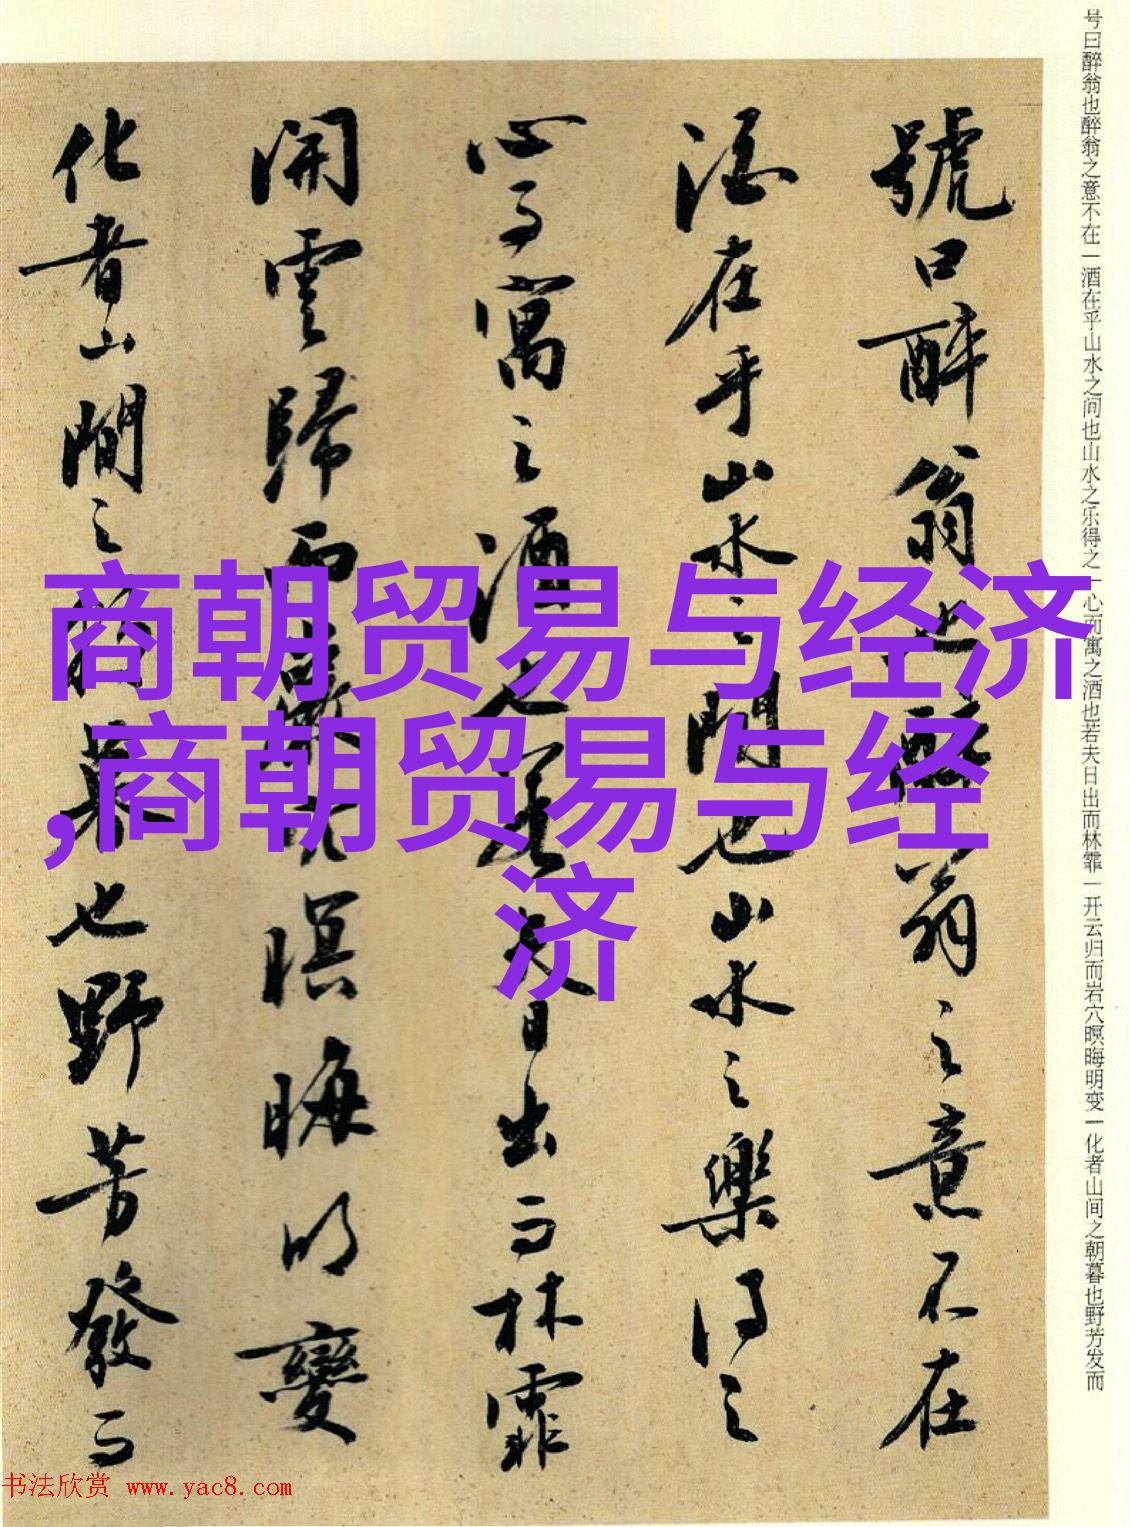 号曰醉翁也醉翁之意不在一酒在乎山水之间也山水之乐得之一心而寓之酒也若夫日出而林霏一开云归而岩穴暝晦明变一化者山间之朝暮也野芳发而
號曰醉翁也醉翁之意不在
酒在乎山水之間也山水之樂得之
心而寓之酒也若夫日出而林霏
開雲歸而巖穴暝晦明變
化者山間之朝暮也野芳發而
商朝贸易与经济
,商朝贸易与经
济
书法欣赏 www.yac8.com